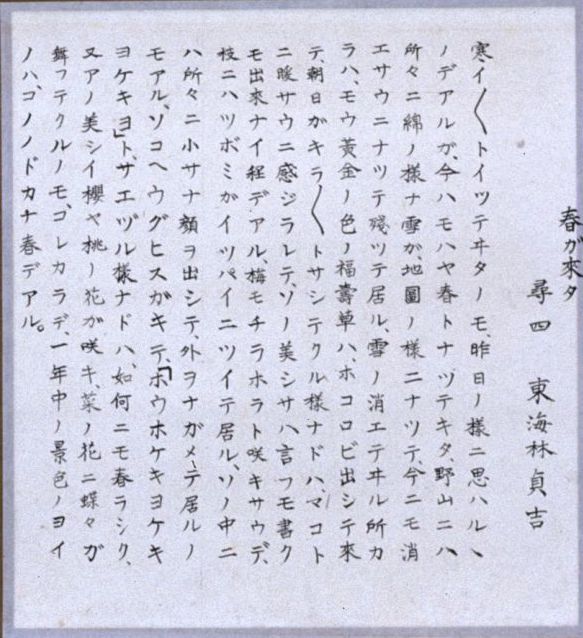 春ガ來タ
尋四 東海林貞吉
寒イ〳〵トイツテヰタノモ、昨日ノ様ニ思ハルヽ
ノデアルガ、今ハモハヤ春トナツテキタ、野山ニハ
所々ニ綿ノ様ナ雪ガ、地圖ノ様ニナツテ、今ニモ消
エサウニナツテ殘ツテ居ル、雪ノ消エテヰル所カ
ラハ、モウ黃金ノ色ノ福壽草ハ、ホコロビ出シテ來
テ、朝日ガキラ〳〵トサシテクル様ナドハ、マコト
ニ暖サウニ感ジラレテ、ソノ美シサハ言フモ書ク
モ出來ナイ程デアル、梅モチラホラト咲キサウデ、
枝ニハツボミガイツパイニツイテ居ル、ソノ中ニ
ハ所々ニ小サナ顔ヲ出シテ、外ヲナガメテ居ルノ
モアル、ソコヘウグヒスガキテ、「ホウホケキヨケキ
ヨケキヨ」ト、サエヅル様ナドハ、如何ニモ春ラシク、
又アノ美シイ櫻ヤ桃ノ花ガ咲キ、菜ノ花ニ蝶々ガ
舞フテクルノモ、コレカラデ、一年中ノ景色ノヨイ
ノハ、コノノドカナ春デアル。